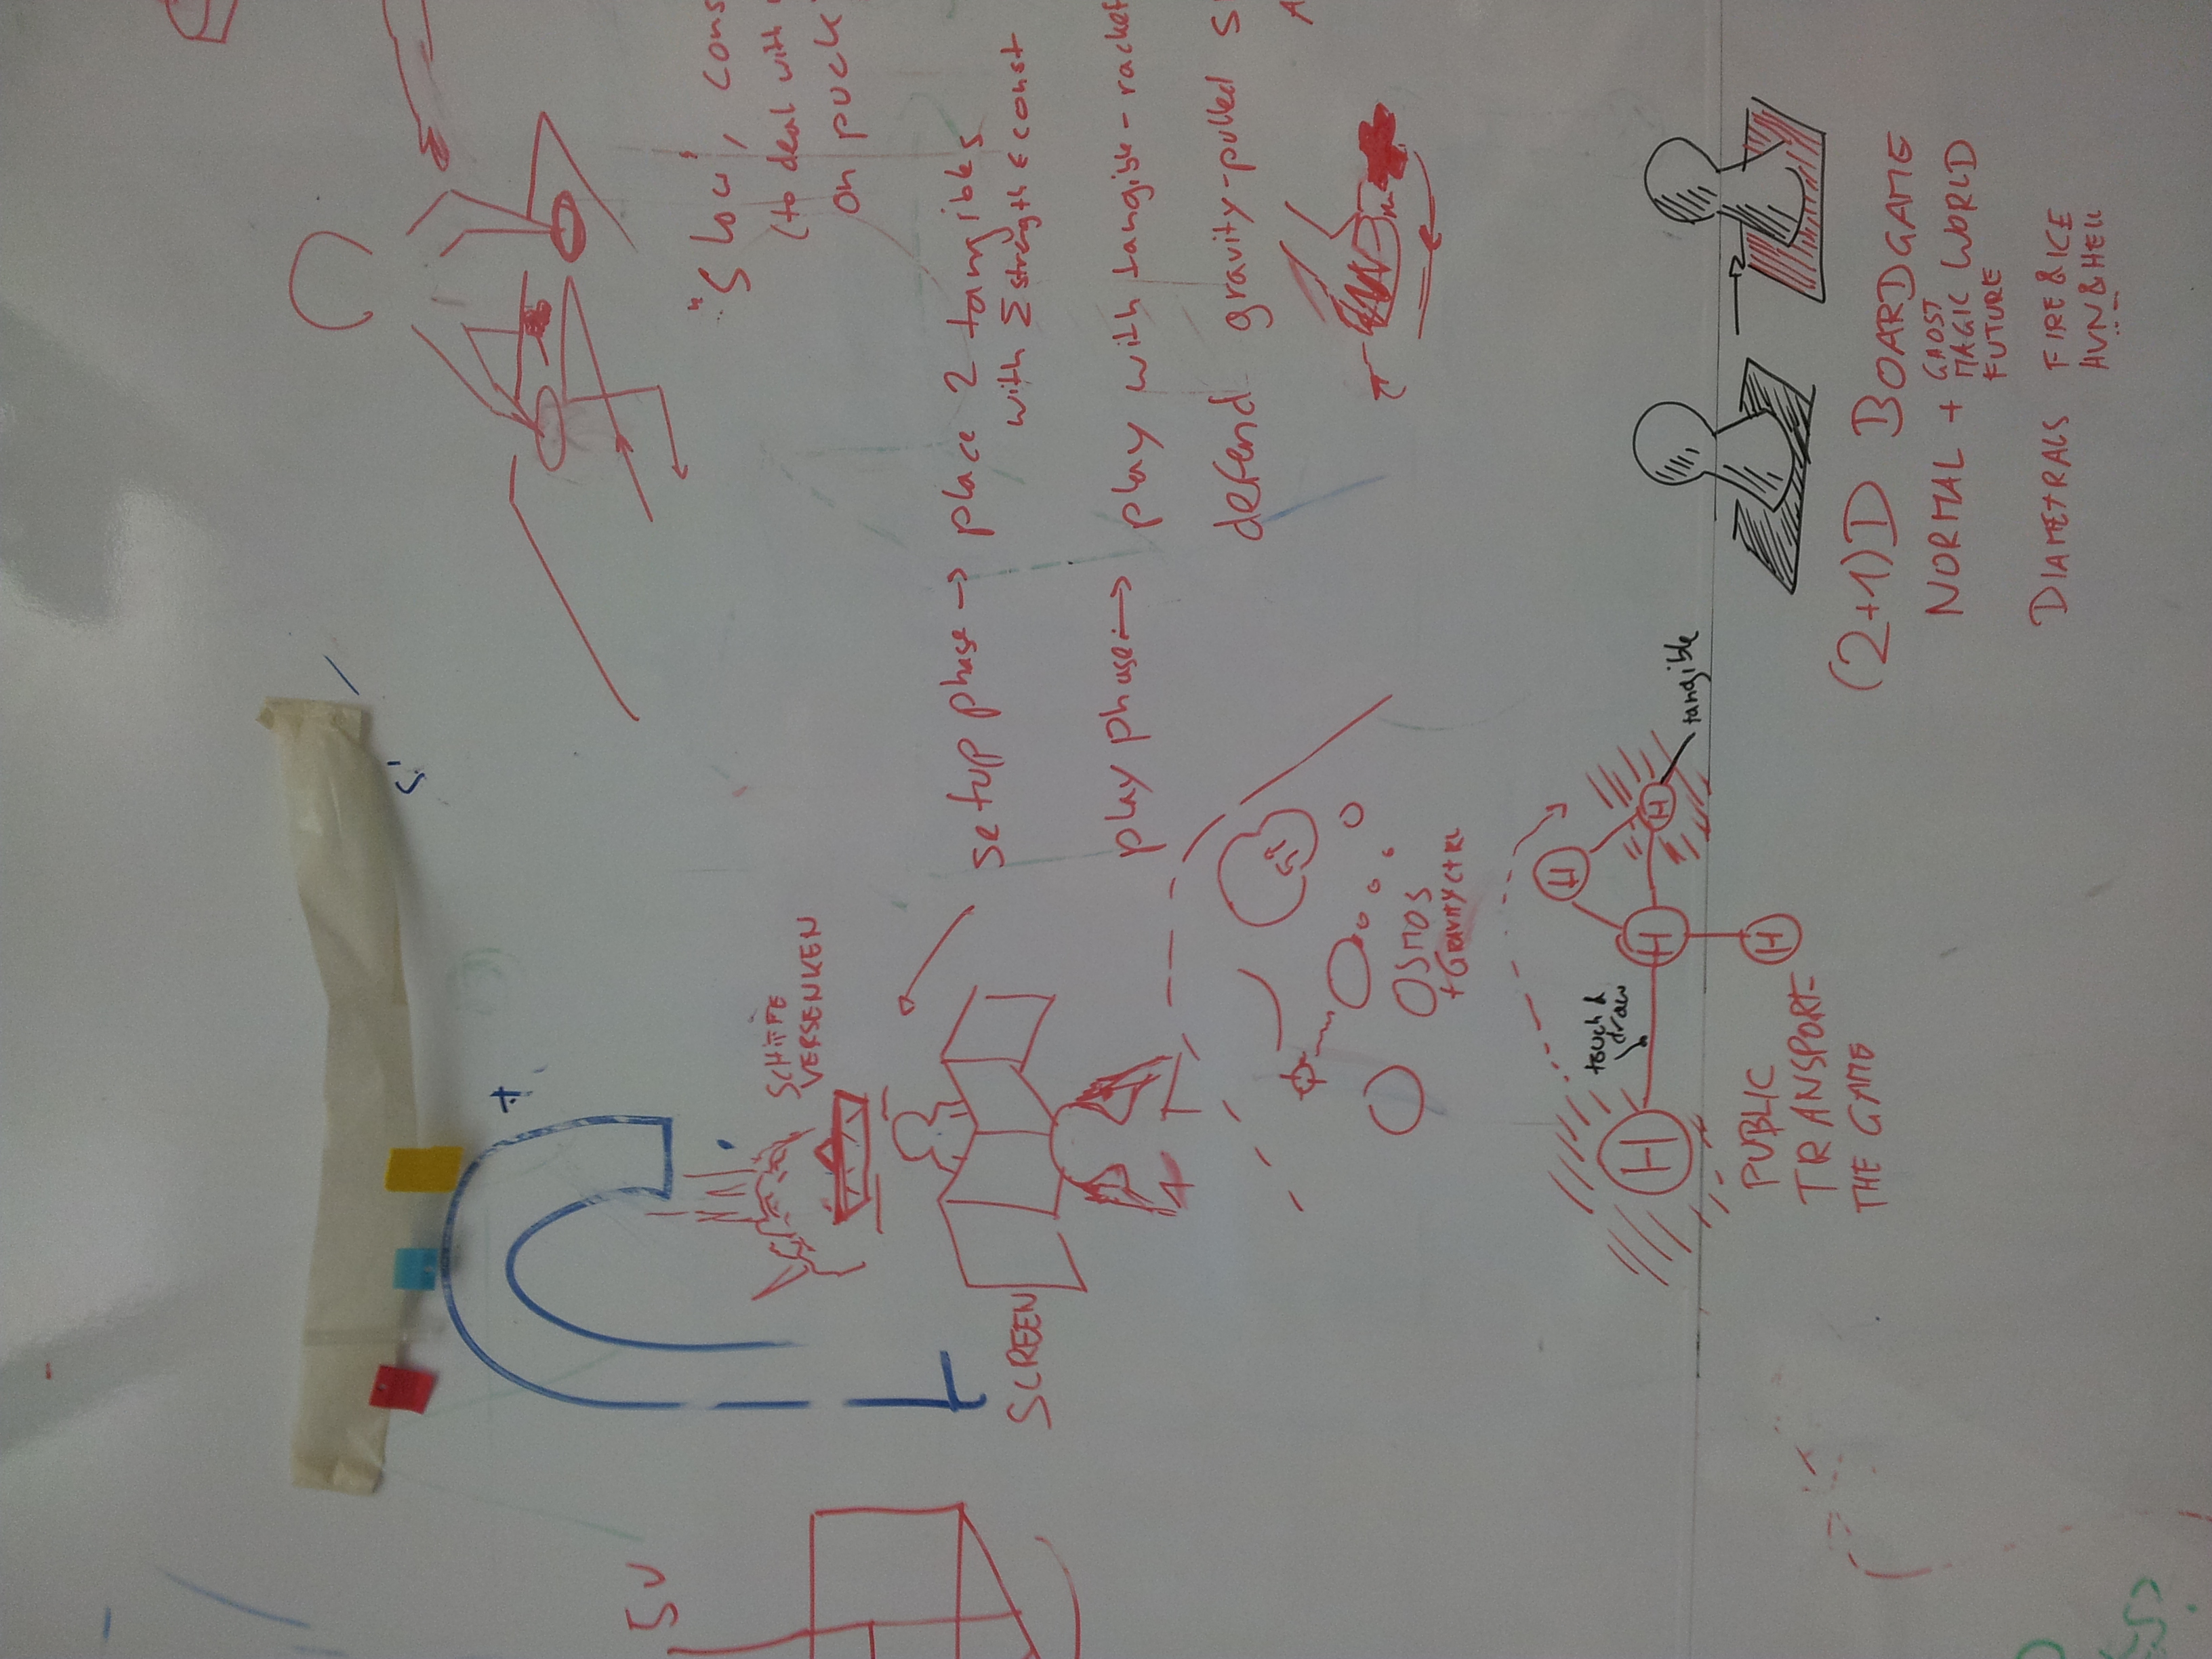 5V
"Slow", cons
(to deal with
on puck
SCHIFFE
VERSENKEN
SCREEN
setup phase → place 2 tangibles
with Σ strength ≤ const
play phase → play with tangible-racket
defend gravity-pulled s
OSMOS
+ GRAVITY CTRL
H
touch &
draw
H
H
H
tangible
H
PUBLIC
TRANSPORT-
THE GAME
(2+1)D BOARDGAME
NORMAL + GHOST
MAGIC WORLD
FUTURE
DIAMETRALS FIRE & ICE
HVN & HELL